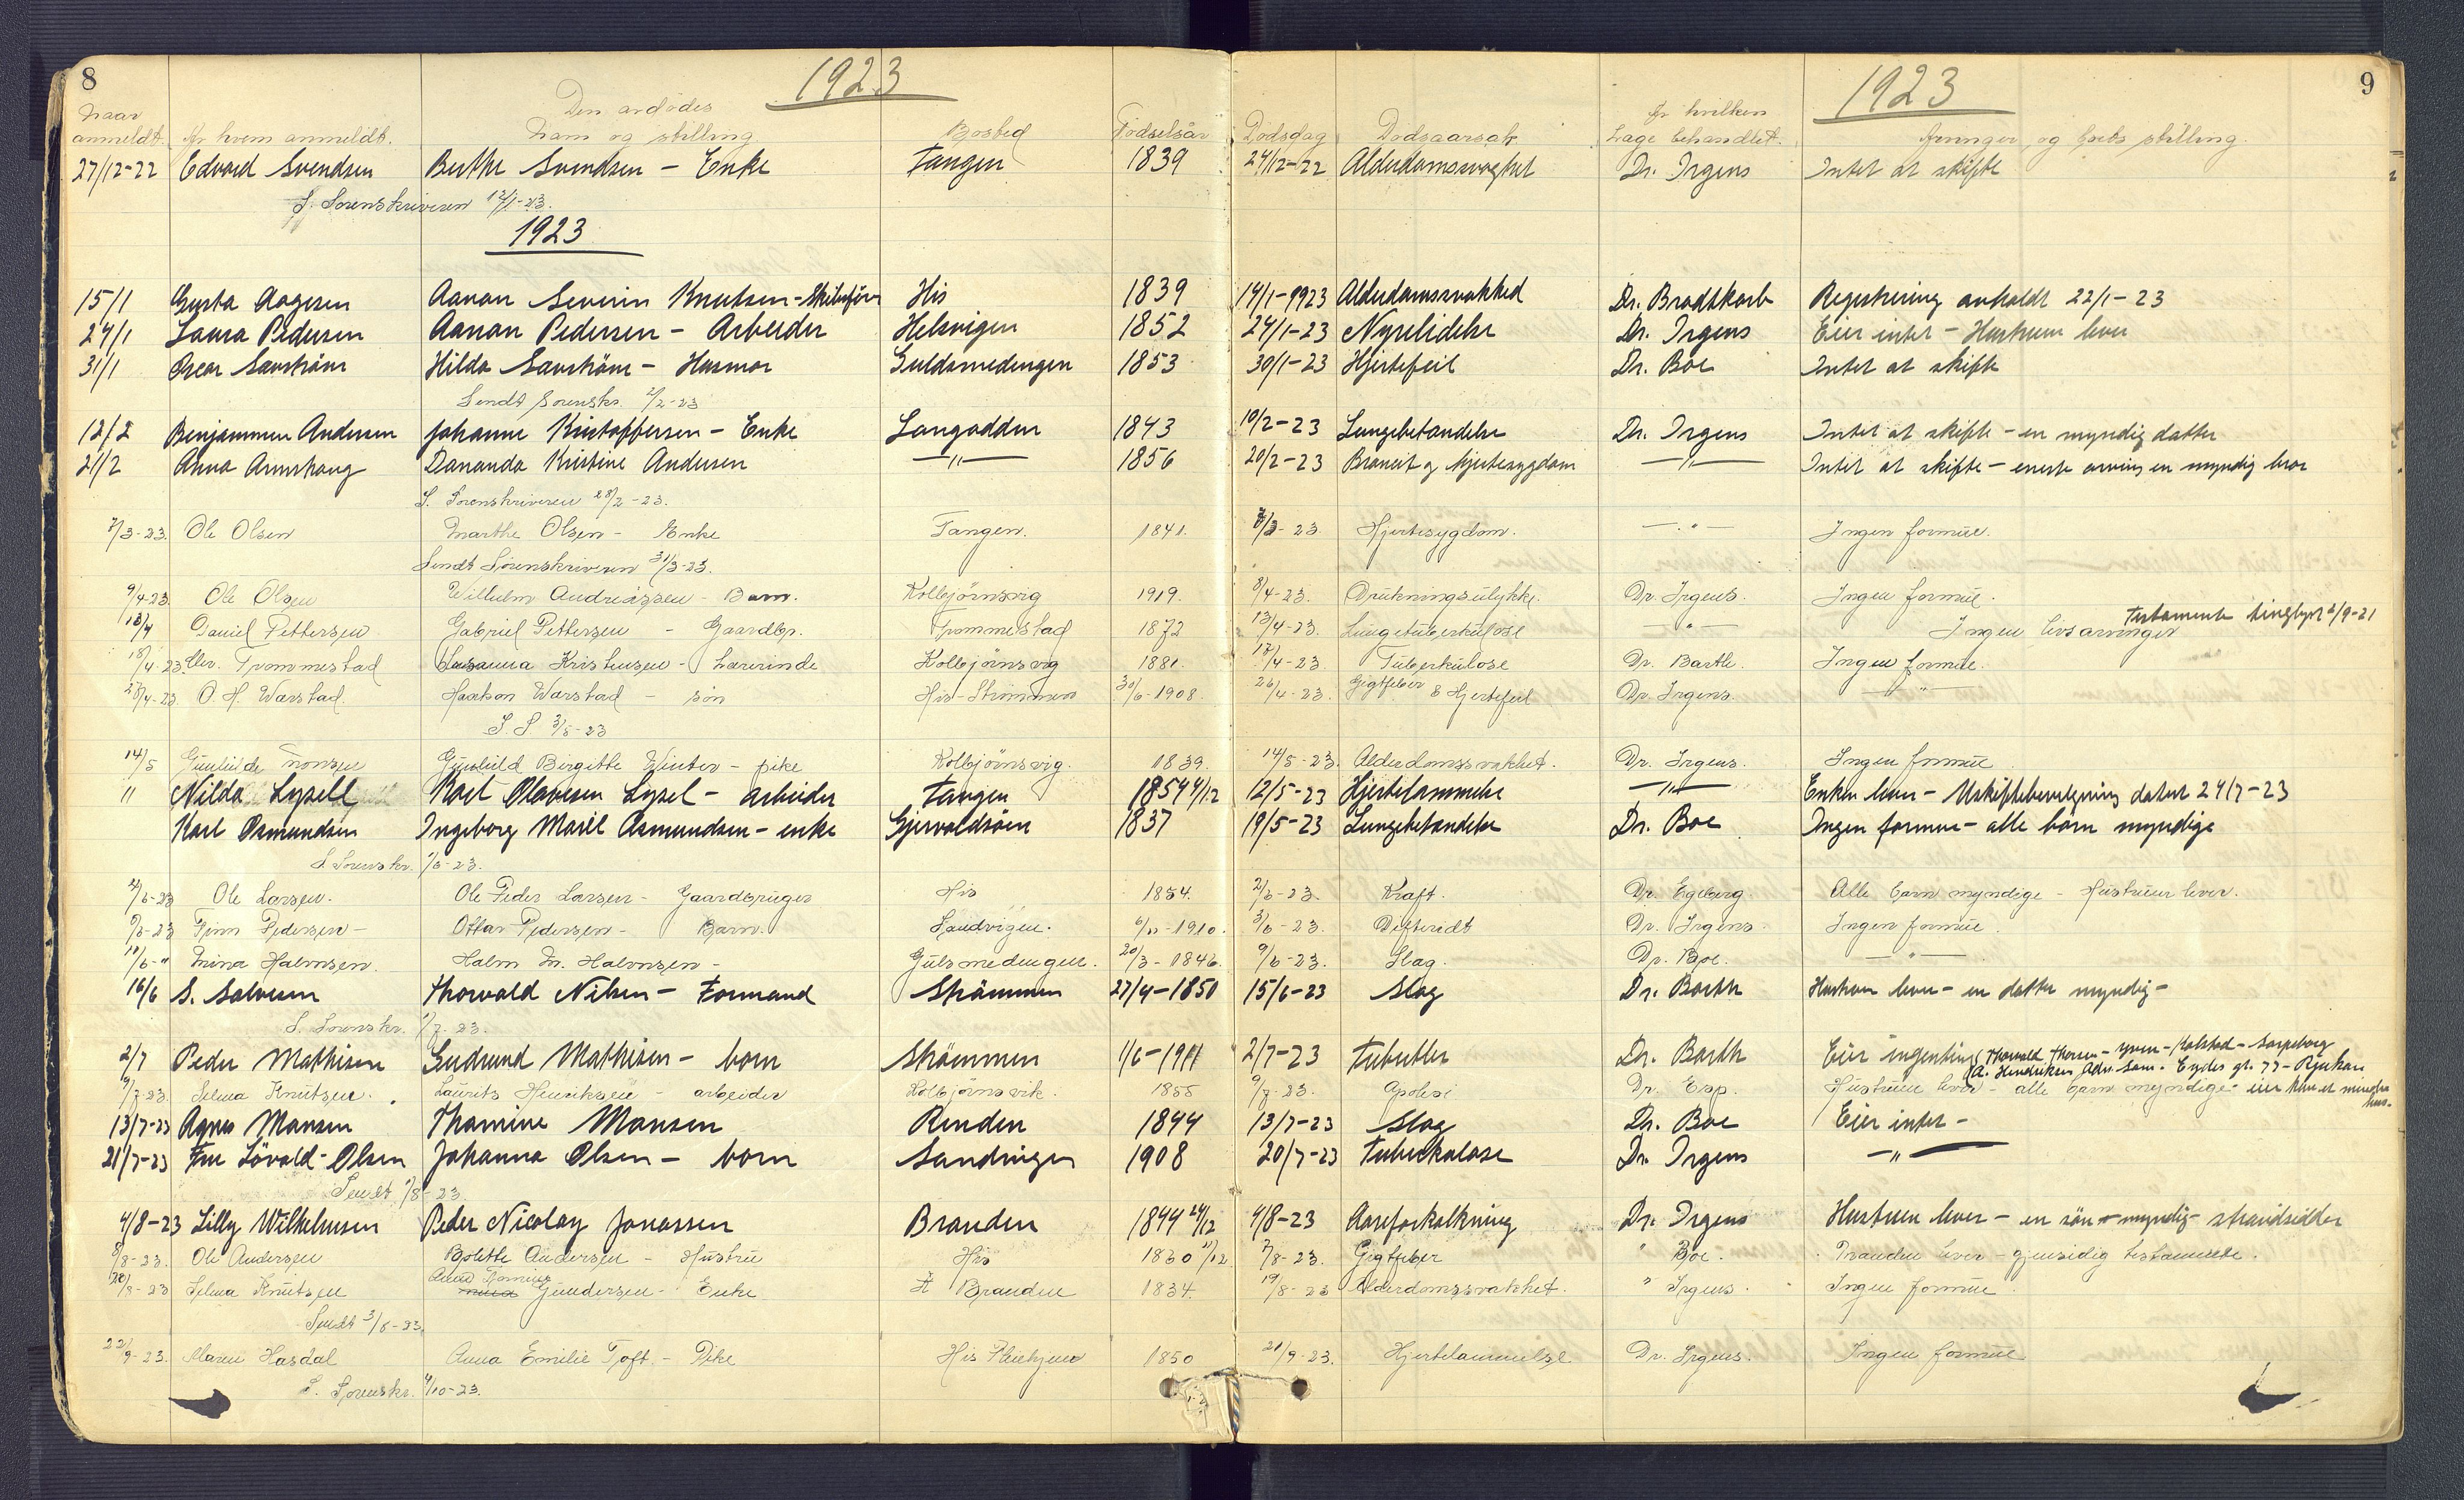 8
1923
1923
9
Naar anmeldt. Av hvem anmeldt. Den avdødes navn og stilling Bosted Fødselsår Dødsdag Dødsaarsak Av hvilken Læge behandlet. Arvinger og boets stilling.
27/12-22 Edvard Svendsen Berthe Svendsen - Enke Tangen 1839 24/12-22 Alderdomssvaghet Dr. Irgens Intet at skifte
S. Sorenskriveren 12/1-23.
1923
15/1 Gusta Aagesen Aanon Severin Knutsen - Skibsfør His 1839 14/1-1923 Alderdomssvakhed Dr. Brodtkorb Registrering avholdt 22/1-23
24/1 Laura Pedersen Aanon Pedersen - Arbeider Helsvigen 1852 24/1-23 Nyrelidelse Dr. Irgens Eier intet - Hustruen lever
31/1 Oscar Savström Hilda Savström - Husmor Guldsmedengen 1853 30/1-23 Hjertefeil Dr. Boe Intet at skifte
Sendt Sorenskr. 2/2-23
12/2 Benjammen Andersen Johanne Kristoffersen - Enke Langodden 1843 10/2-23 Lungebetændelse Dr. Irgens Intet at skifte - en myndig datter
21/2 Anna Dananda Kristine Andersen -"- 1856 20/2-23 Broncit og hjertesygdom -"- Intet at skifte - eneste arving en myndig bror
S. Sorenskriveren 28/2-23.
7/3-23. Ole Olsen Marthe Olsen - Enke Tangen. 1841. /3-23. Hjertesygdom. -"- Ingen formue.
Sendt Sorenskriveren 31/3-23.
9/4-23. Ole Olsen Wilhelm Andreassen - Barn. Kolbjörnsvig 1919. 8/4-23. Drukningsulykke. Dr. Irgens. Ingen formue.
13/4 Daniel Pettersen Gabriel Pettersen - Gaardbr. Trommestad 1872 13/4-23. Lungetuberkulose -"- Ingen livsarvinger Testamente tinglyst 2/9-21
18/4-23 Trommestad Susanna Kristensen - Lærerinde Kolbjörnsvig 1881. 17/4-23. Tuberkulose Dr. Barth. Ingen formue.
28/4-23 O. H. Warstad. Haakon Warstad - søn His-Strömmen 30/6-1908. 26/4-23. Gigtfeber & Hjertefeil Dr. Irgens. -"-
S. S. 3/5-23
14/5 Gunhilde Gunhild Birgitte Winter - pike Kolbjörnsvig. 1839. 14/5-23. Alderdomssvakhet. Dr. Irgens. Ingen formue
" Nilda Lysell Karl Olavesen Lysel - arbeider Tangen 1854 4/12 12/5-23 Hjertelammelse -"- Enken lever - Uskiftebevilgning datert 24/7-23
Karl Osmundsen Ingeborg Marie Osmundsen - enke Gjervoldsöen 1837 19/5-23 Lungebetændelse Dr. Boe Ingen formue - alle börn myndige
S. Sorenskr. 1/6-23.
2/6-23 Ole Larsen. Ole Peder Larsen - Gaardbruger His 1854. 2/6-23. Kræft. Dr. Egeberg. Alle barn myndige - Hustruen lever.
5/6-23 Finn Pedersen - Ottar Pedersen - Barn. Sandvigen. 6/11-1910. 3/6-23. Difteridt Dr. Irgens. Ingen formue.
10/6-" Mina Halvorsen. Halvor M. Halvorsen - Gulsmedengen. 20/3-1846. 9/6-23. Slag. Dr. Boe. -"-
16/6 S. Salvesen Thorvald Nilsen - Formand Strömmen 27/4-1850 15/6-23 Slag Dr. Barth Hustruen lever - en datter myndig -
S. Sorenskr. 1/7-23.
2/7 Peder Mathisen Gudrund Mathisen - barn Strömmen 1/6-1911 2/7-23 Tuberkler Dr. Barth Eier ingenting
9/7-23. Selma Knutsen. Laurits Henriksen - arbeider Kolbjörnsvik. 1855 9/7-23. Apolexi Dr. Esp. Hustruen lever - alle barn myndige - eier kun et mindre hus.
13/7-23 Agnes Monsen Thomine Monsen Renden 1844 13/7-23 Slag Dr. Boe Eier intet -
21/7-23 Fru Lövold-Olsen Johanna Olsen - barn Sandvigen 1908 20/7-23 Tuberkulose Dr. Irgens -"-
Sendt 1/8-23.
4/8-23 Lilly Wilhelmsen Peder Nicolay Jonassen Branden 1844 24/12 4/8-23 Aareforkalkning Dr. Irgens Hustruen lever - en sön - myndig - strandsidder
8/8-23. Ole Andersen Bolette Andersen - Hustru His 1830 11/12 7/8-23. Gigtfeber " Boe. Manden lever - gjensidig testamente.
20/8-23 Selma Knutsen Gundersen - Enke Branden 1834. 19/8-23 Alderdomssvakhet. " Irgens. Ingen formue.
Sendt 3/8-23.
22/9-23. Maren Hasdal Anna Emilie Toft. - Pike His Pleiehjem 1850 21/9-23. Hjertelammelse Dr. Irgens. Ingen formue
S. Sorenskr. 4/10-23.